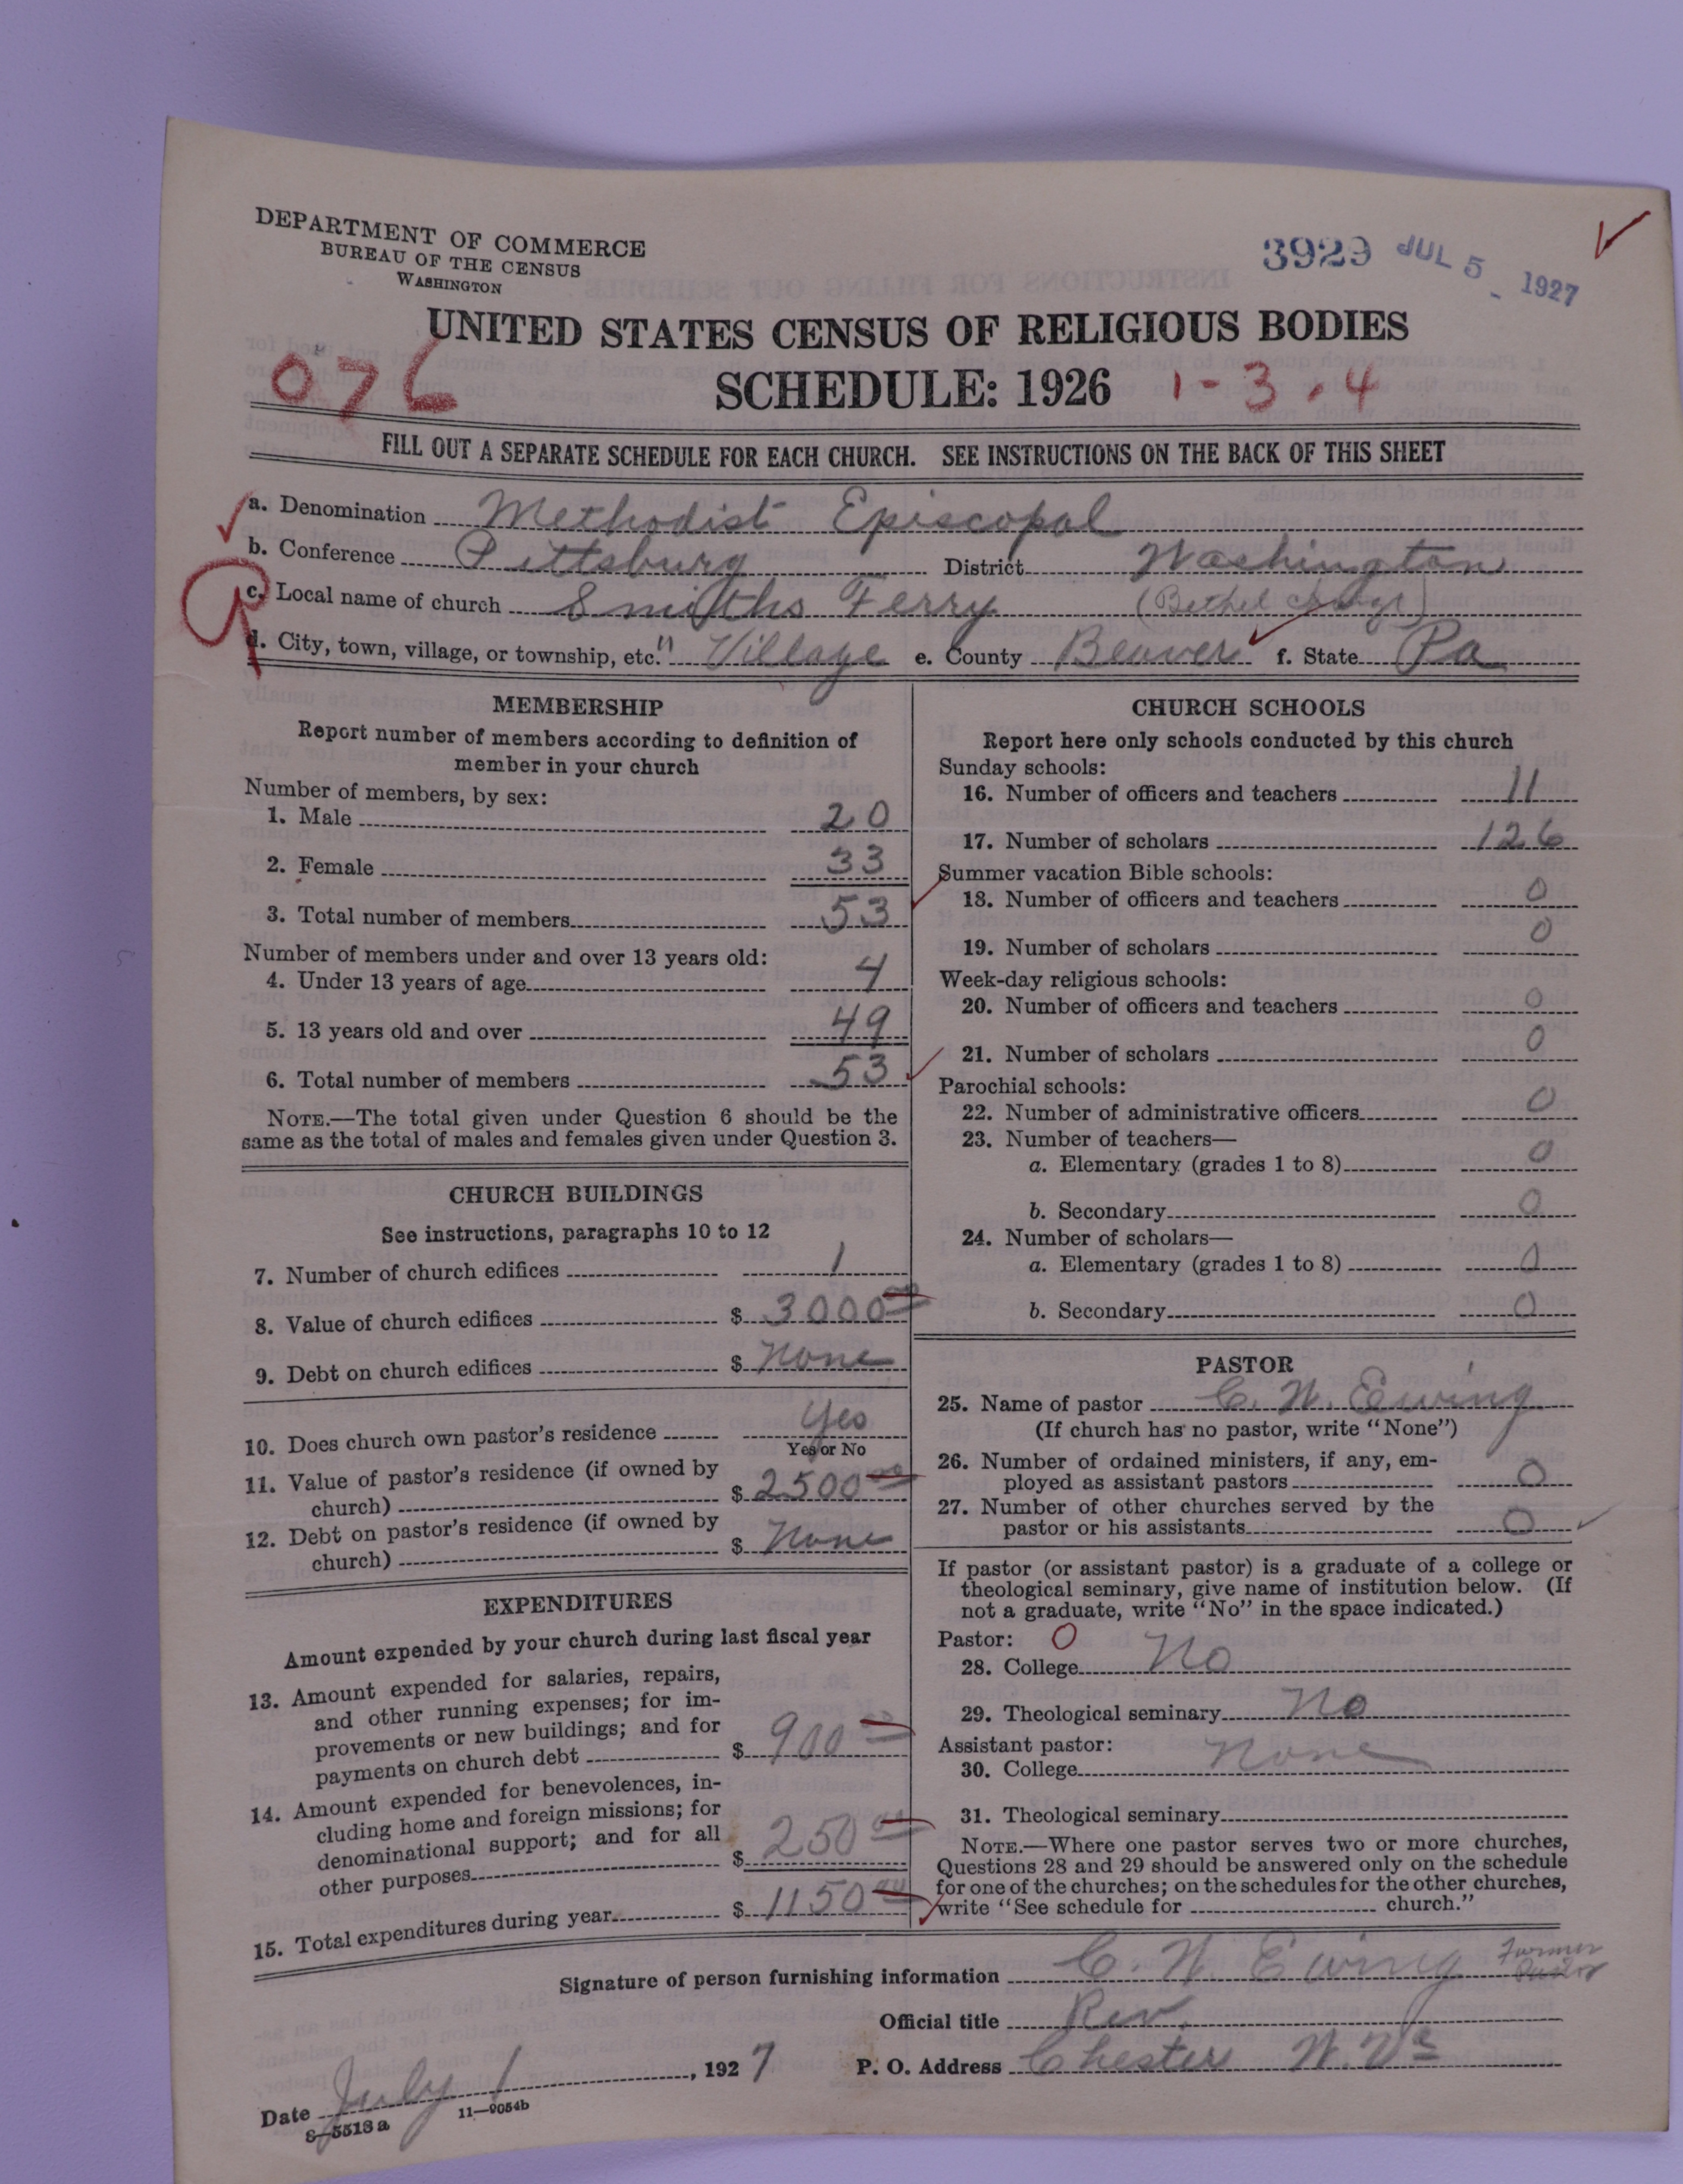 DEPARTMENT OF COMMERCE
BUREAU OF THE CENSUS
WASHINGTON
3929 JUL 5 1927
UNITED STATES CENSUS OF RELIGIOUS BODIES
076 SCHEDULE: 1926 1-3.4
FILL OUT A SEPARATE SCHEDULE FOR EACH CHURCH. SEE INSTRUCTIONS ON THE BACK OF THIS SHEET
a. Denomination Methodist Episcopal
b. Conference Pittsburg District Washington
c. Local name of church Smiths Ferry (Bethel charge)
d. City, town, village, or township, etc. " Village e. County Beaver f. State Pa
MEMBERSHIP
Report number of members according to definition of
member in your church
Number of members, by sex:
1. Male 20
2. Female 33
3. Total number of members 53
Number of members under and over 13 years old:
4. Under 13 years of age 4
5. 13 years old and over 49
6. Total number of members 53
NOTE.—The total given under Question 6 should be the
same as the total of males and females given under Question 3.
CHURCH BUILDINGS
See instructions, paragraphs 10 to 12
7. Number of church edifices 1
8. Value of church edifices $ 3000 00
9. Debt on church edifices $ None
10. Does church own pastor's residence Yes
Yes or No
11. Value of pastor's residence (if owned by
church) $ 2500 00
12. Debt on pastor's residence (if owned by
church) $ None
EXPENDITURES
Amount expended by your church during last fiscal year
13. Amount expended for salaries, repairs,
and other running expenses; for im-
provements or new buildings; and for
payments on church debt $ 900 00
14. Amount expended for benevolences, in-
cluding home and foreign missions; for
denominational support; and for all
other purposes $ 250 00
15. Total expenditures during year $ 1150 00
CHURCH SCHOOLS
Report here only schools conducted by this church
Sunday schools:
16. Number of officers and teachers 11
17. Number of scholars 126
Summer vacation Bible schools:
18. Number of officers and teachers 0
19. Number of scholars 0
Week-day religious schools:
20. Number of officers and teachers 0
21. Number of scholars 0
Parochial schools:
22. Number of administrative officers 0
23. Number of teachers—
a. Elementary (grades 1 to 8) 0
b. Secondary 0
24. Number of scholars—
a. Elementary (grades 1 to 8) 0
b. Secondary 0
PASTOR
25. Name of pastor C. W. Ewing
(If church has no pastor, write "None")
26. Number of ordained ministers, if any, em-
ployed as assistant pastors 0
27. Number of other churches served by the
pastor or his assistants 0
If pastor (or assistant pastor) is a graduate of a college or
theological seminary, give name of institution below. (If
not a graduate, write "No" in the space indicated.)
Pastor: 0
28. College No
29. Theological seminary No
Assistant pastor:
30. College None
31. Theological seminary
NOTE.—Where one pastor serves two or more churches,
Questions 28 and 29 should be answered only on the schedule
for one of the churches; on the schedules for the other churches,
write "See schedule for church."
Signature of person furnishing information C. W. Ewing Former Pastor
Official title Rev.
Date July 1, 1927 P. O. Address Chester W. Va
8—5513 a 11—9054b